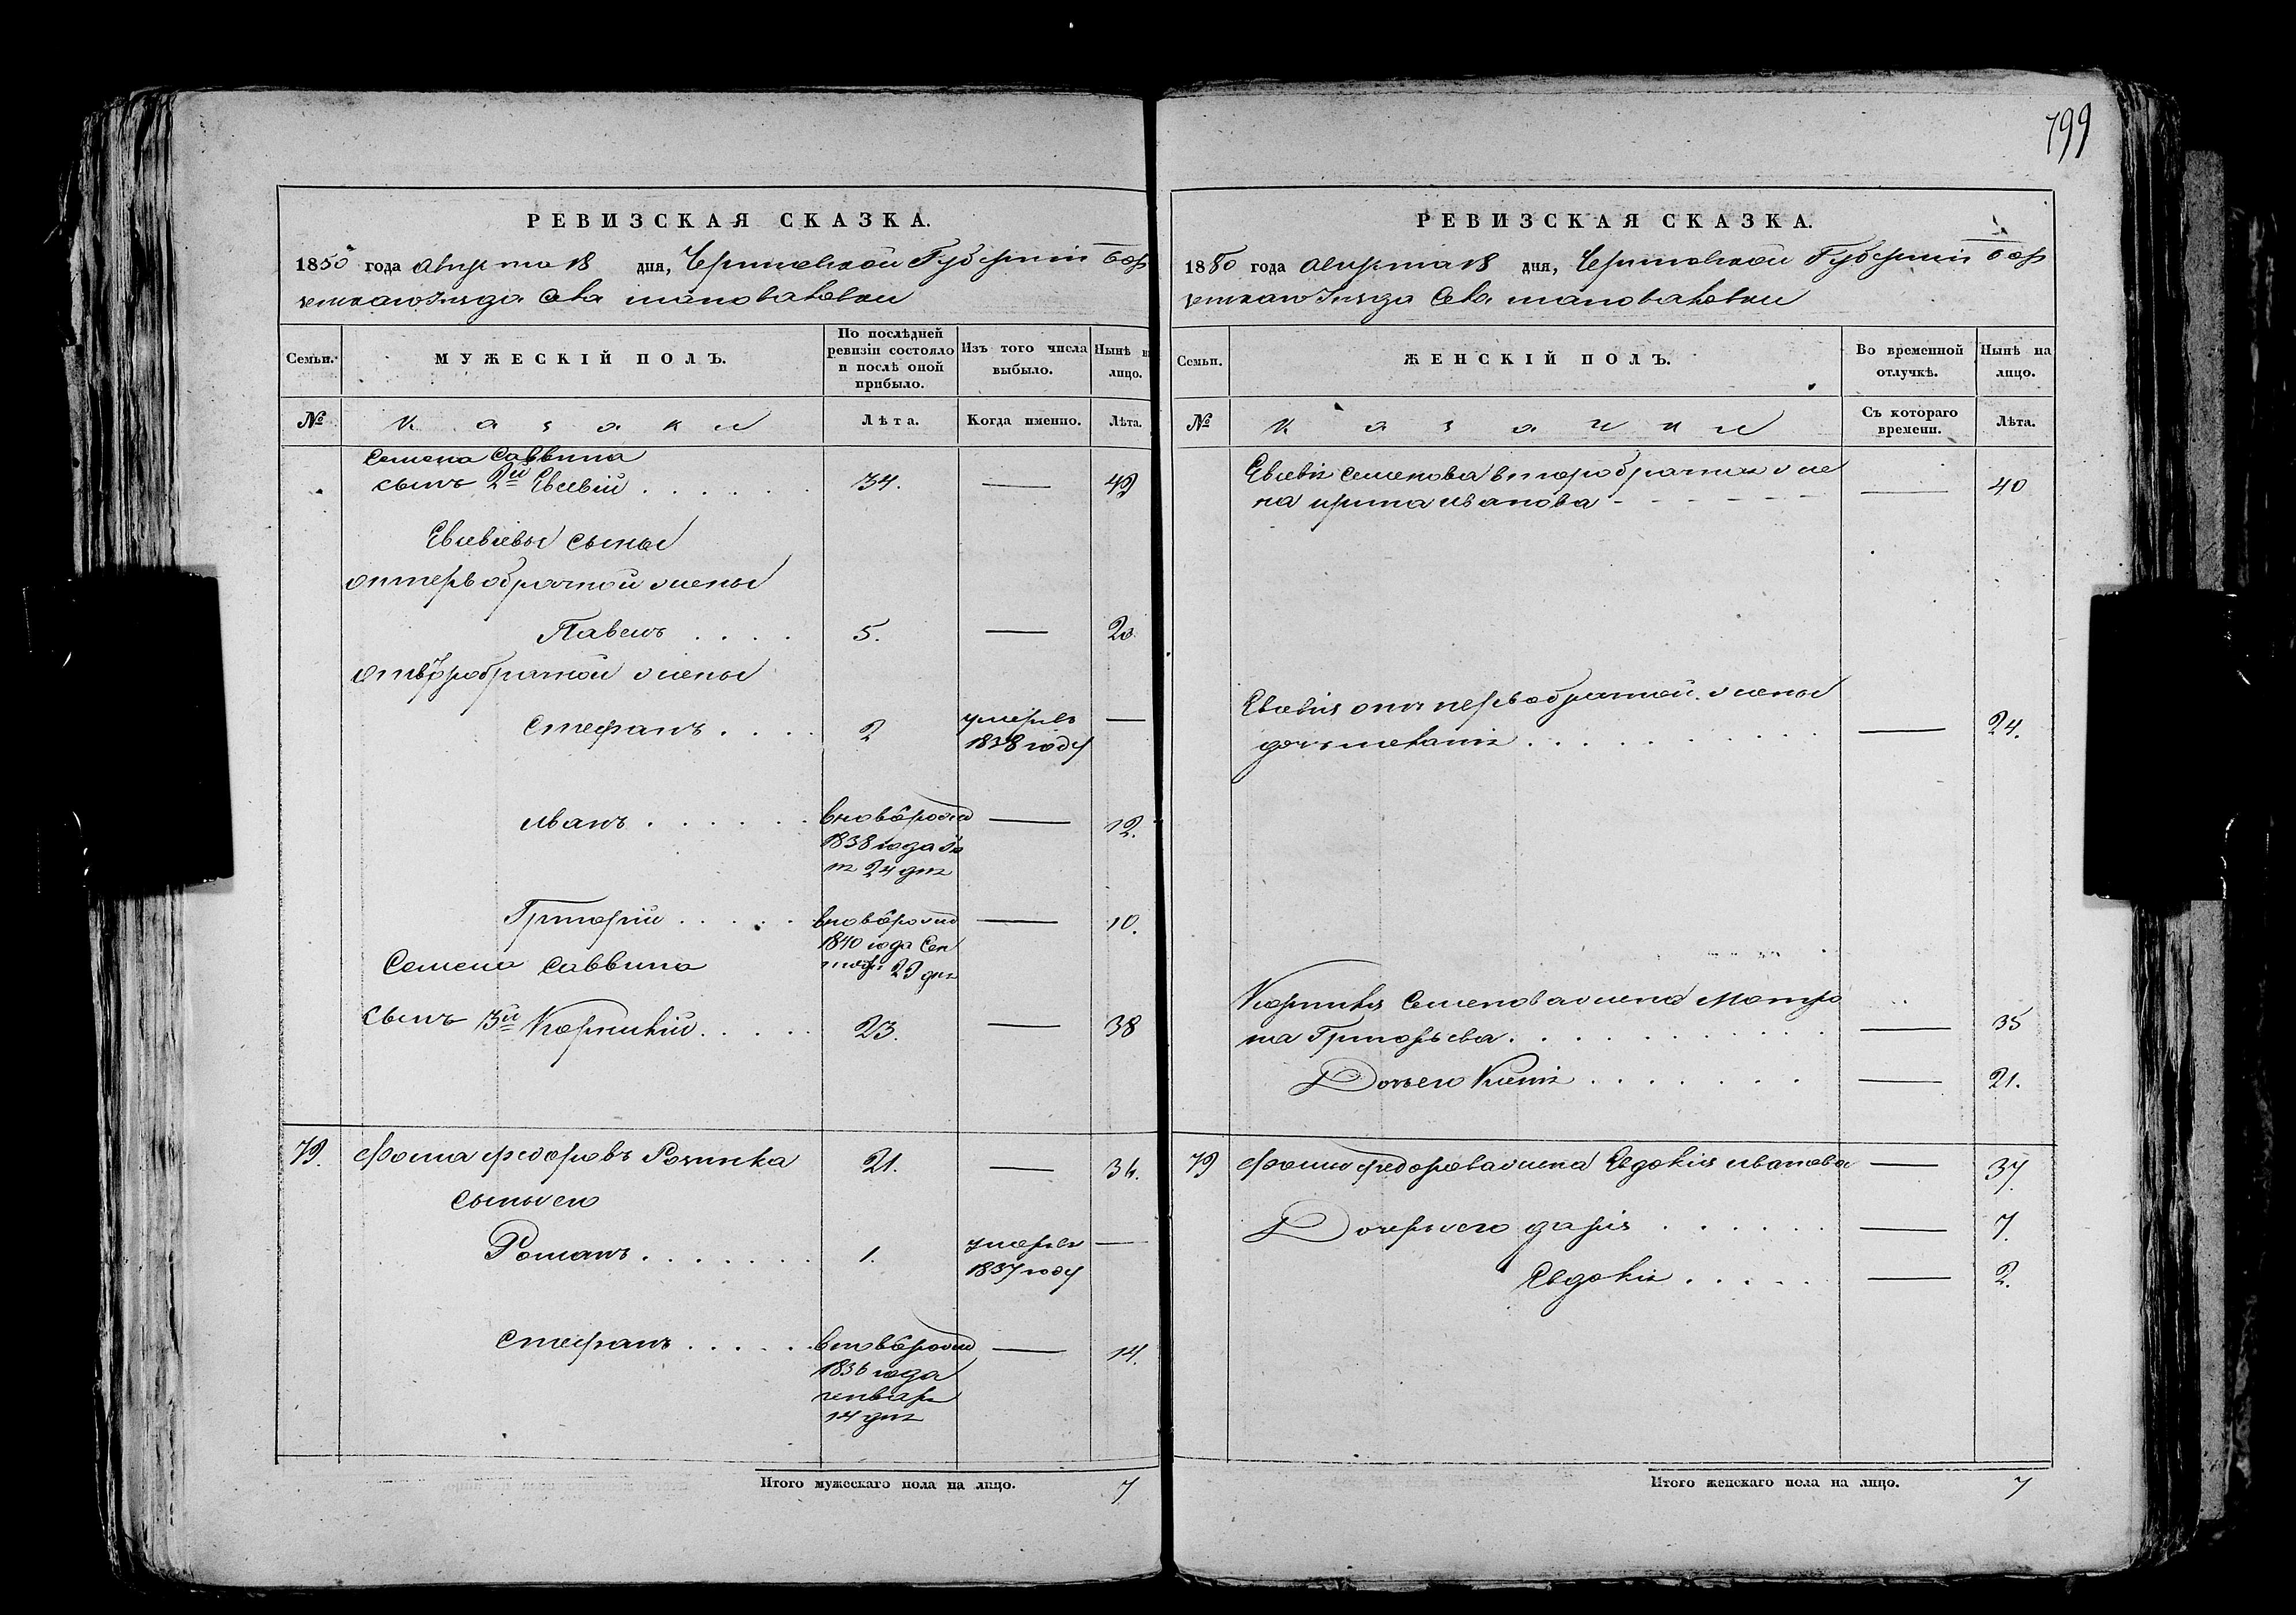 799
РЕВИЗСКАЯ СКАЗКА.
1850 года августа 18 дня, Черниговской Губернии Бор
зенскаго Уезда Села
Семьи.
МУЖЕСКІЙ ПОЛЪ.
По послѣдней ревизіи состояло и послѣ оной прибыло.
Изъ того числа выбыло.
Нынѣ на лицо.
№
Козаки
Лѣта.
Когда именно.
Лѣта.
Семена Саввина
сынъ 2й Евсевій . . . . . . 34. — 42
Евсевіевы сыны
отпервобрачной жены
Павелъ . . . . 5. — 20
отвторобрачной жены
Стефанъ . . . . 2 умеръ —
1838 году
Иванъ . . . . . . вновьрожд — 12.
1838 года
24 дня
Григорій . . . . . вновьрожд — 10.
1840 года Сен
тября дня
Семена Саввина
сынъ 3й Корнилій . . . . . 23. — 38
79. Фома Федоровъ 21. — 36.
Сыны его
Романъ . . . . . . . 1. умеръ —
1837 году
Стефанъ . . . . . вновьрожд — 14.
1836 года
генваря
14 дня
Итого мужескаго пола на лицо. 7
РЕВИЗСКАЯ СКАЗКА.
1850 года августа 18 дня, Черниговской Губернии Бор
зенскаго Уезда Села
Семьи.
ЖЕНСКІЙ ПОЛЪ.
Во временной отлучкѣ.
Нынѣ на лицо.
№
Козачки
Съ котораго времени.
Лѣта.
Евсевія Семенова второбрачная же
на Ирина Иванова — 40
Евсевія отъ первобрачной жены
дочь . . . . . . . . . — 24.
Корнилія Семенова жена Матро
на Григорьева . . . . . . . . . — 35
Дочь его . . . . . . . — 21.
79 Фомы Федорова жена Евдокія Иванова — 37
Дочери его Дарія . . . . . . — 7.
Евдокія . . . . . — 2.
Итого женскаго пола на лицо. 7